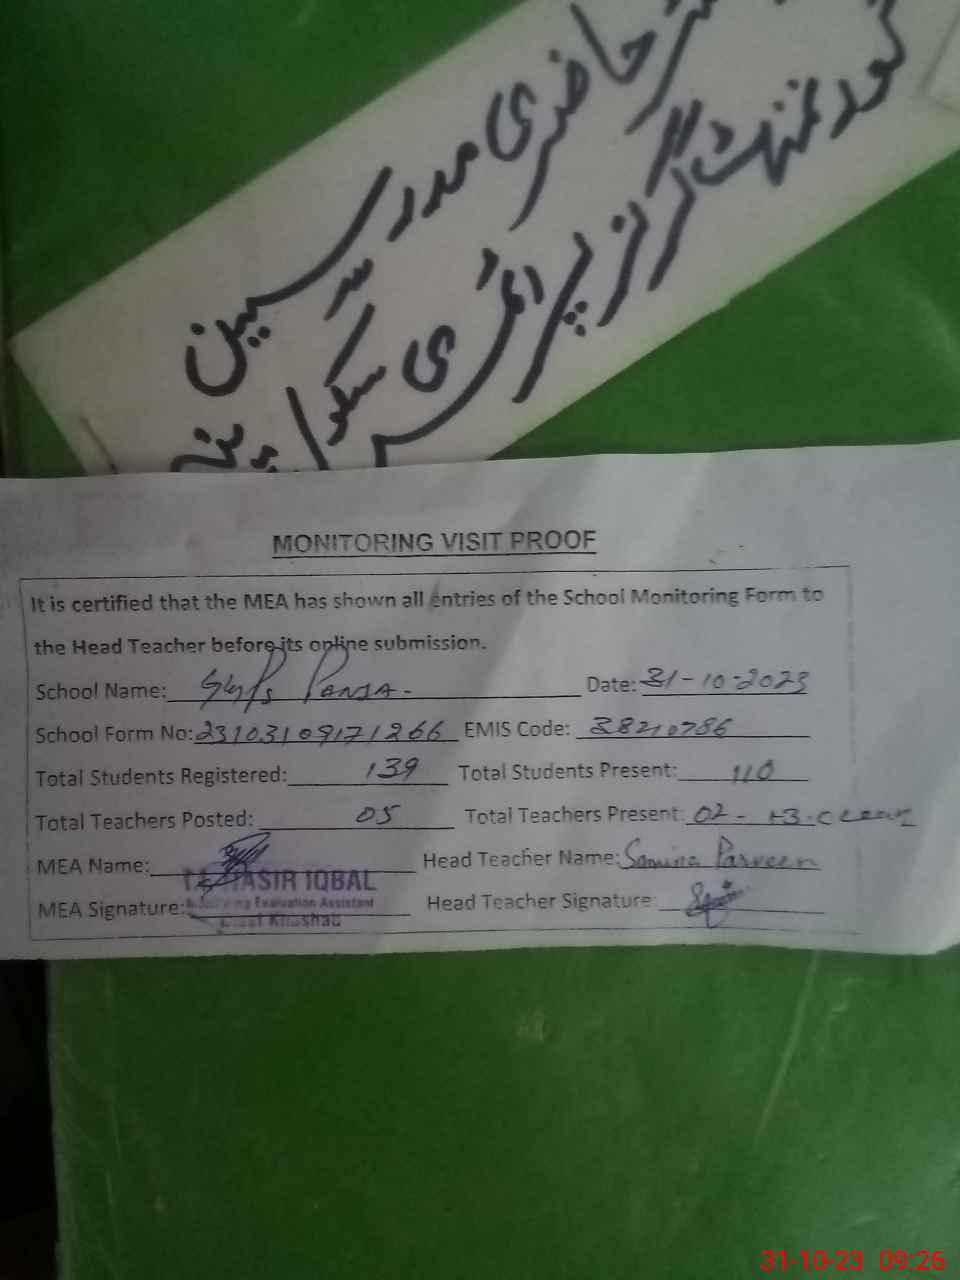 حاضری مدرسین
گورنمنٹ گرلز پرائمری سکول
MONITORING VISIT PROOF
It is certified that the MEA has shown all entries of the School Monitoring Form to
the Head Teacher before its online submission.
School Name: GGPS PANJA - Date: 31-10-2023
School Form No: 23103109171266 EMIS Code: 38210786
Total Students Registered: 139 Total Students Present: 110
Total Teachers Posted: 05 Total Teachers Present: 02 - +3-C Leave
MEA Name: Head Teacher Name: Samina Parveen
ASIR IQBAL
MEA Signature: Evaluation Assistant Head Teacher Signature:
Khushab
31-10-23 09:26